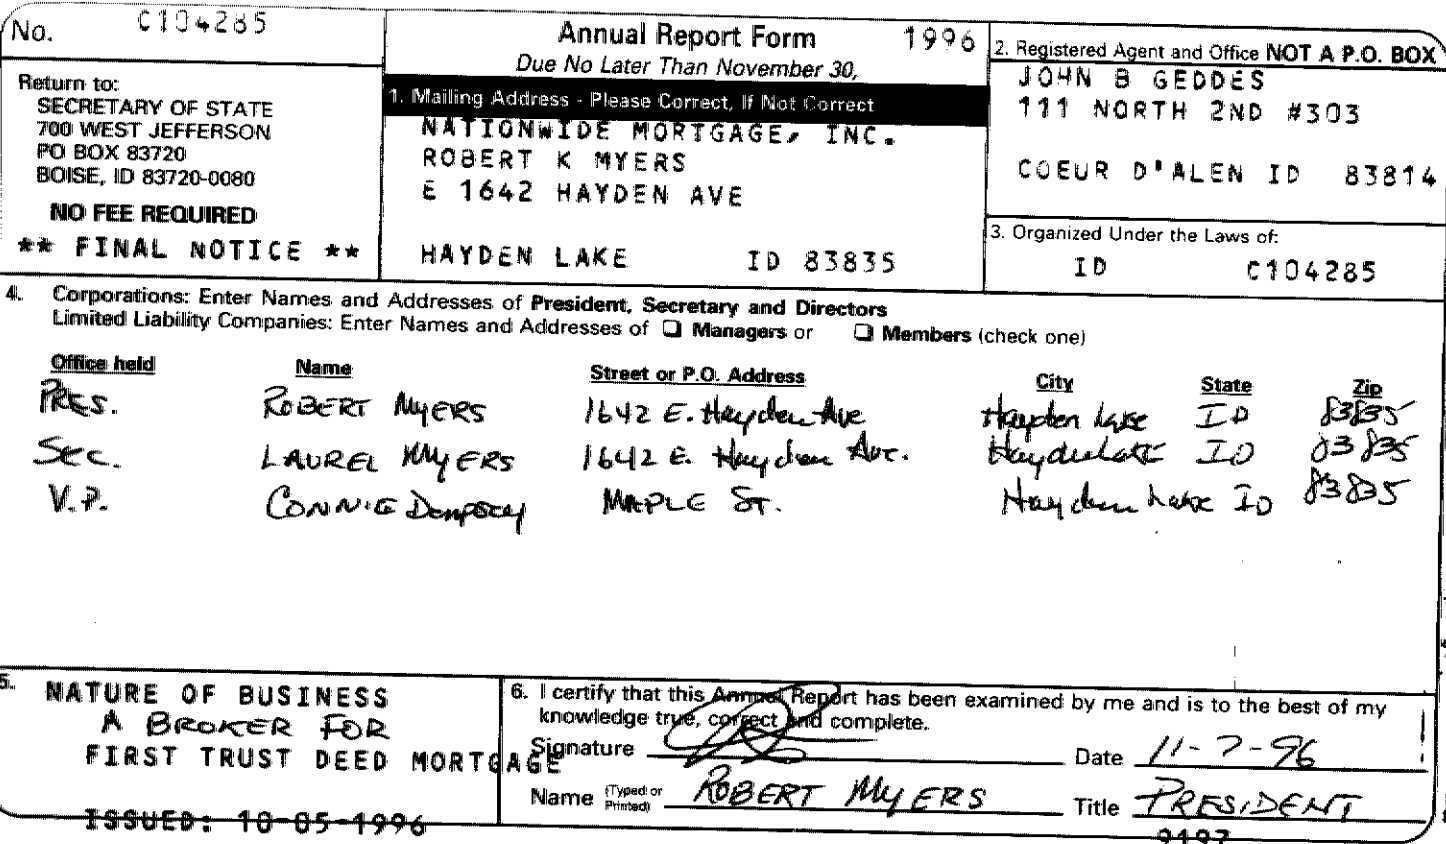 No. C104285
Return to:
SECRETARY OF STATE
700 WEST JEFFERSON
PO BOX 83720
BOISE, ID 83720-0080
NO FEE REQUIRED
** FINAL NOTICE **
Annual Report Form 1996
Due No Later Than November 30,
1. Mailing Address - Please Correct, If Not Correct
NATIONWIDE MORTGAGE, INC.
ROBERT K MYERS
E 1642 HAYDEN AVE
HAYDEN LAKE ID 83835
2. Registered Agent and Office NOT A P.O. BOX
JOHN B GEDDES
111 NORTH 2ND #303
COEUR D'ALEN ID 83814
3. Organized Under the Laws of:
ID C104285
4. Corporations: Enter Names and Addresses of President, Secretary and Directors
Limited Liability Companies: Enter Names and Addresses of ❑ Managers or ❑ Members (check one)
Office held Name Street or P.O. Address City State Zip
PRES. ROBERT MYERS 1642 E. Hayden Ave Hayden Lake ID 83835
Sec. LAUREL MYERS 1642 E. Hayden Ave. Hayden Lake ID 83835
V.P. CONNIE Dempsey MAPLE ST. Hayden Lake ID 83835
5. NATURE OF BUSINESS
A BROKER FOR
FIRST TRUST DEED MORTGAGE
ISSUED: 10-05-1996
6. I certify that this Annual Report has been examined by me and is to the best of my
knowledge true, correct and complete.
Signature Date 11-7-96
Name (Typed or Printed) ROBERT MYERS Title PRESIDENT
9197